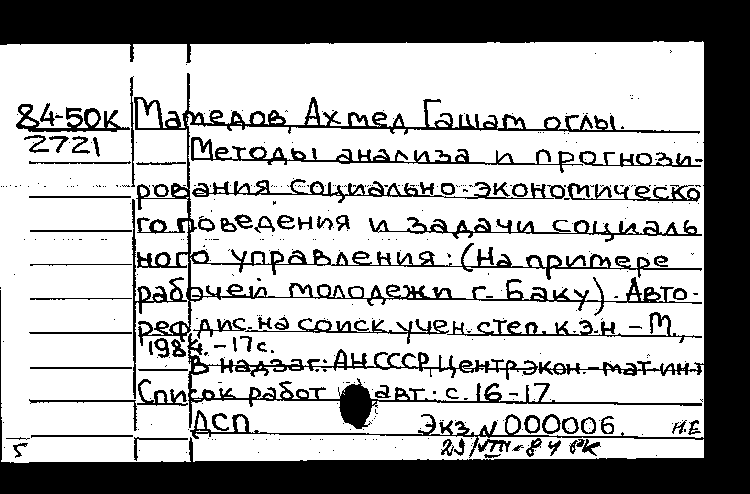 84-50К Мамедов, Ахмед Гашам оглы.
2721 Методы анализа и прогнози-
рования социально-экономическо
го поведения и задачи социаль
ного управления: (На примере
рабочей молодежи г. Баку). Авто-
реф. дис. на соиск. учен. степ. к.э.н. - М.,
1984. - 17 с.
В надзаг.: АН СССР, Центр. экон.-мат. ин-т
Список работ авт.: с. 16-17.
ДСП. Экз. № 000006. И.Е
5 29/VIII-84